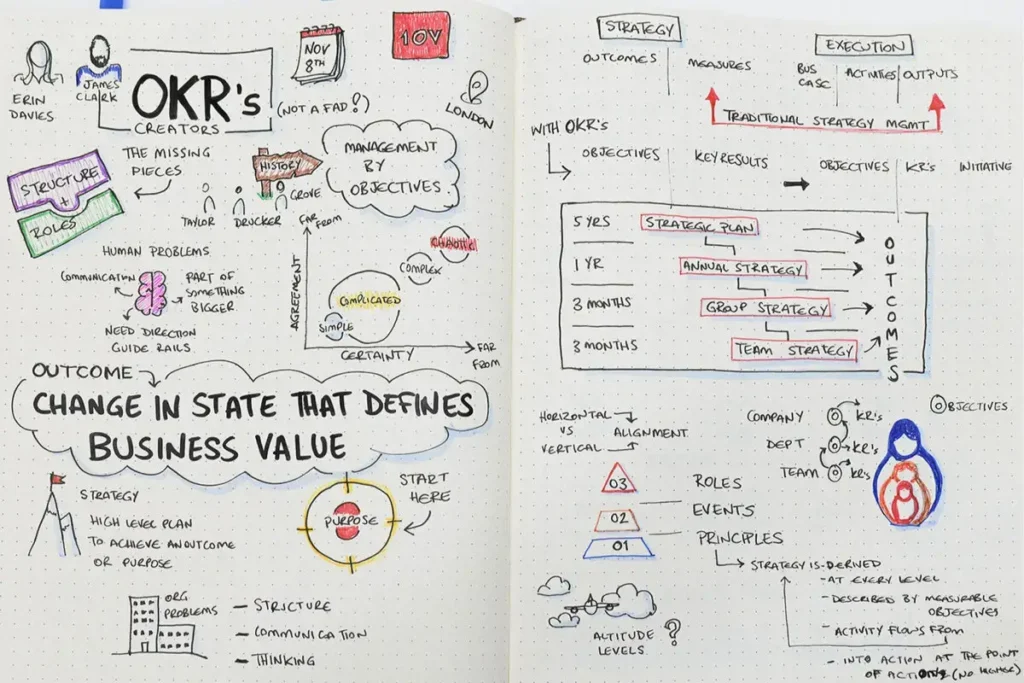 ERIN
DAVIES
JAMES
CLARK
OKR's
CREATORS
(NOT A FAD?)
NOV
8TH
10V
LONDON
STRUCTURE
+
ROLES
THE MISSING
PIECES
HISTORY
TAYLOR
DRUCKER
GROVE
MANAGEMENT
BY
OBJECTIVES
HUMAN PROBLEMS
COMMUNICATION
PART OF
SOMETHING
BIGGER
NEED DIRECTION
GUIDE RAILS
FAR
FROM
AGREEMENT
CHAOTIC
COMPLEX
COMPLICATED
SIMPLE
CERTAINTY
FAR
FROM
OUTCOME
CHANGE IN STATE THAT DEFINES
BUSINESS VALUE
STRATEGY
HIGH LEVEL PLAN
TO ACHIEVE AN OUTCOME
OR PURPOSE
PURPOSE
START
HERE
ORG
PROBLEMS
- STRUCTURE
- COMMUNICATION
- THINKING
STRATEGY
EXECUTION
OUTCOMES
MEASURES
BUS
CASE
ACTIVITIES
OUTPUTS
TRADITIONAL STRATEGY MGMT
WITH OKR's
OBJECTIVES
KEY RESULTS
OBJECTIVES
KR's
INITIATIVE
5 YRS
STRATEGIC PLAN
1 YR
ANNUAL STRATEGY
3 MONTHS
GROUP STRATEGY
3 MONTHS
TEAM STRATEGY
OUTCOMES
HORIZONTAL
VS
VERTICAL
ALIGNMENT
COMPANY
KR's
DEPT
KR's
TEAM
KR's
OBJECTIVES
03
ROLES
02
EVENTS
01
PRINCIPLES
STRATEGY IS-DERIVED
- AT EVERY LEVEL
- DESCRIBED BY MEASURABLE
OBJECTIVES
- ACTIVITY FLOWS FROM
- INTO ACTION AT THE POINT
OF ACTION (NO HIGHER)
ALTITUDE
LEVELS
?